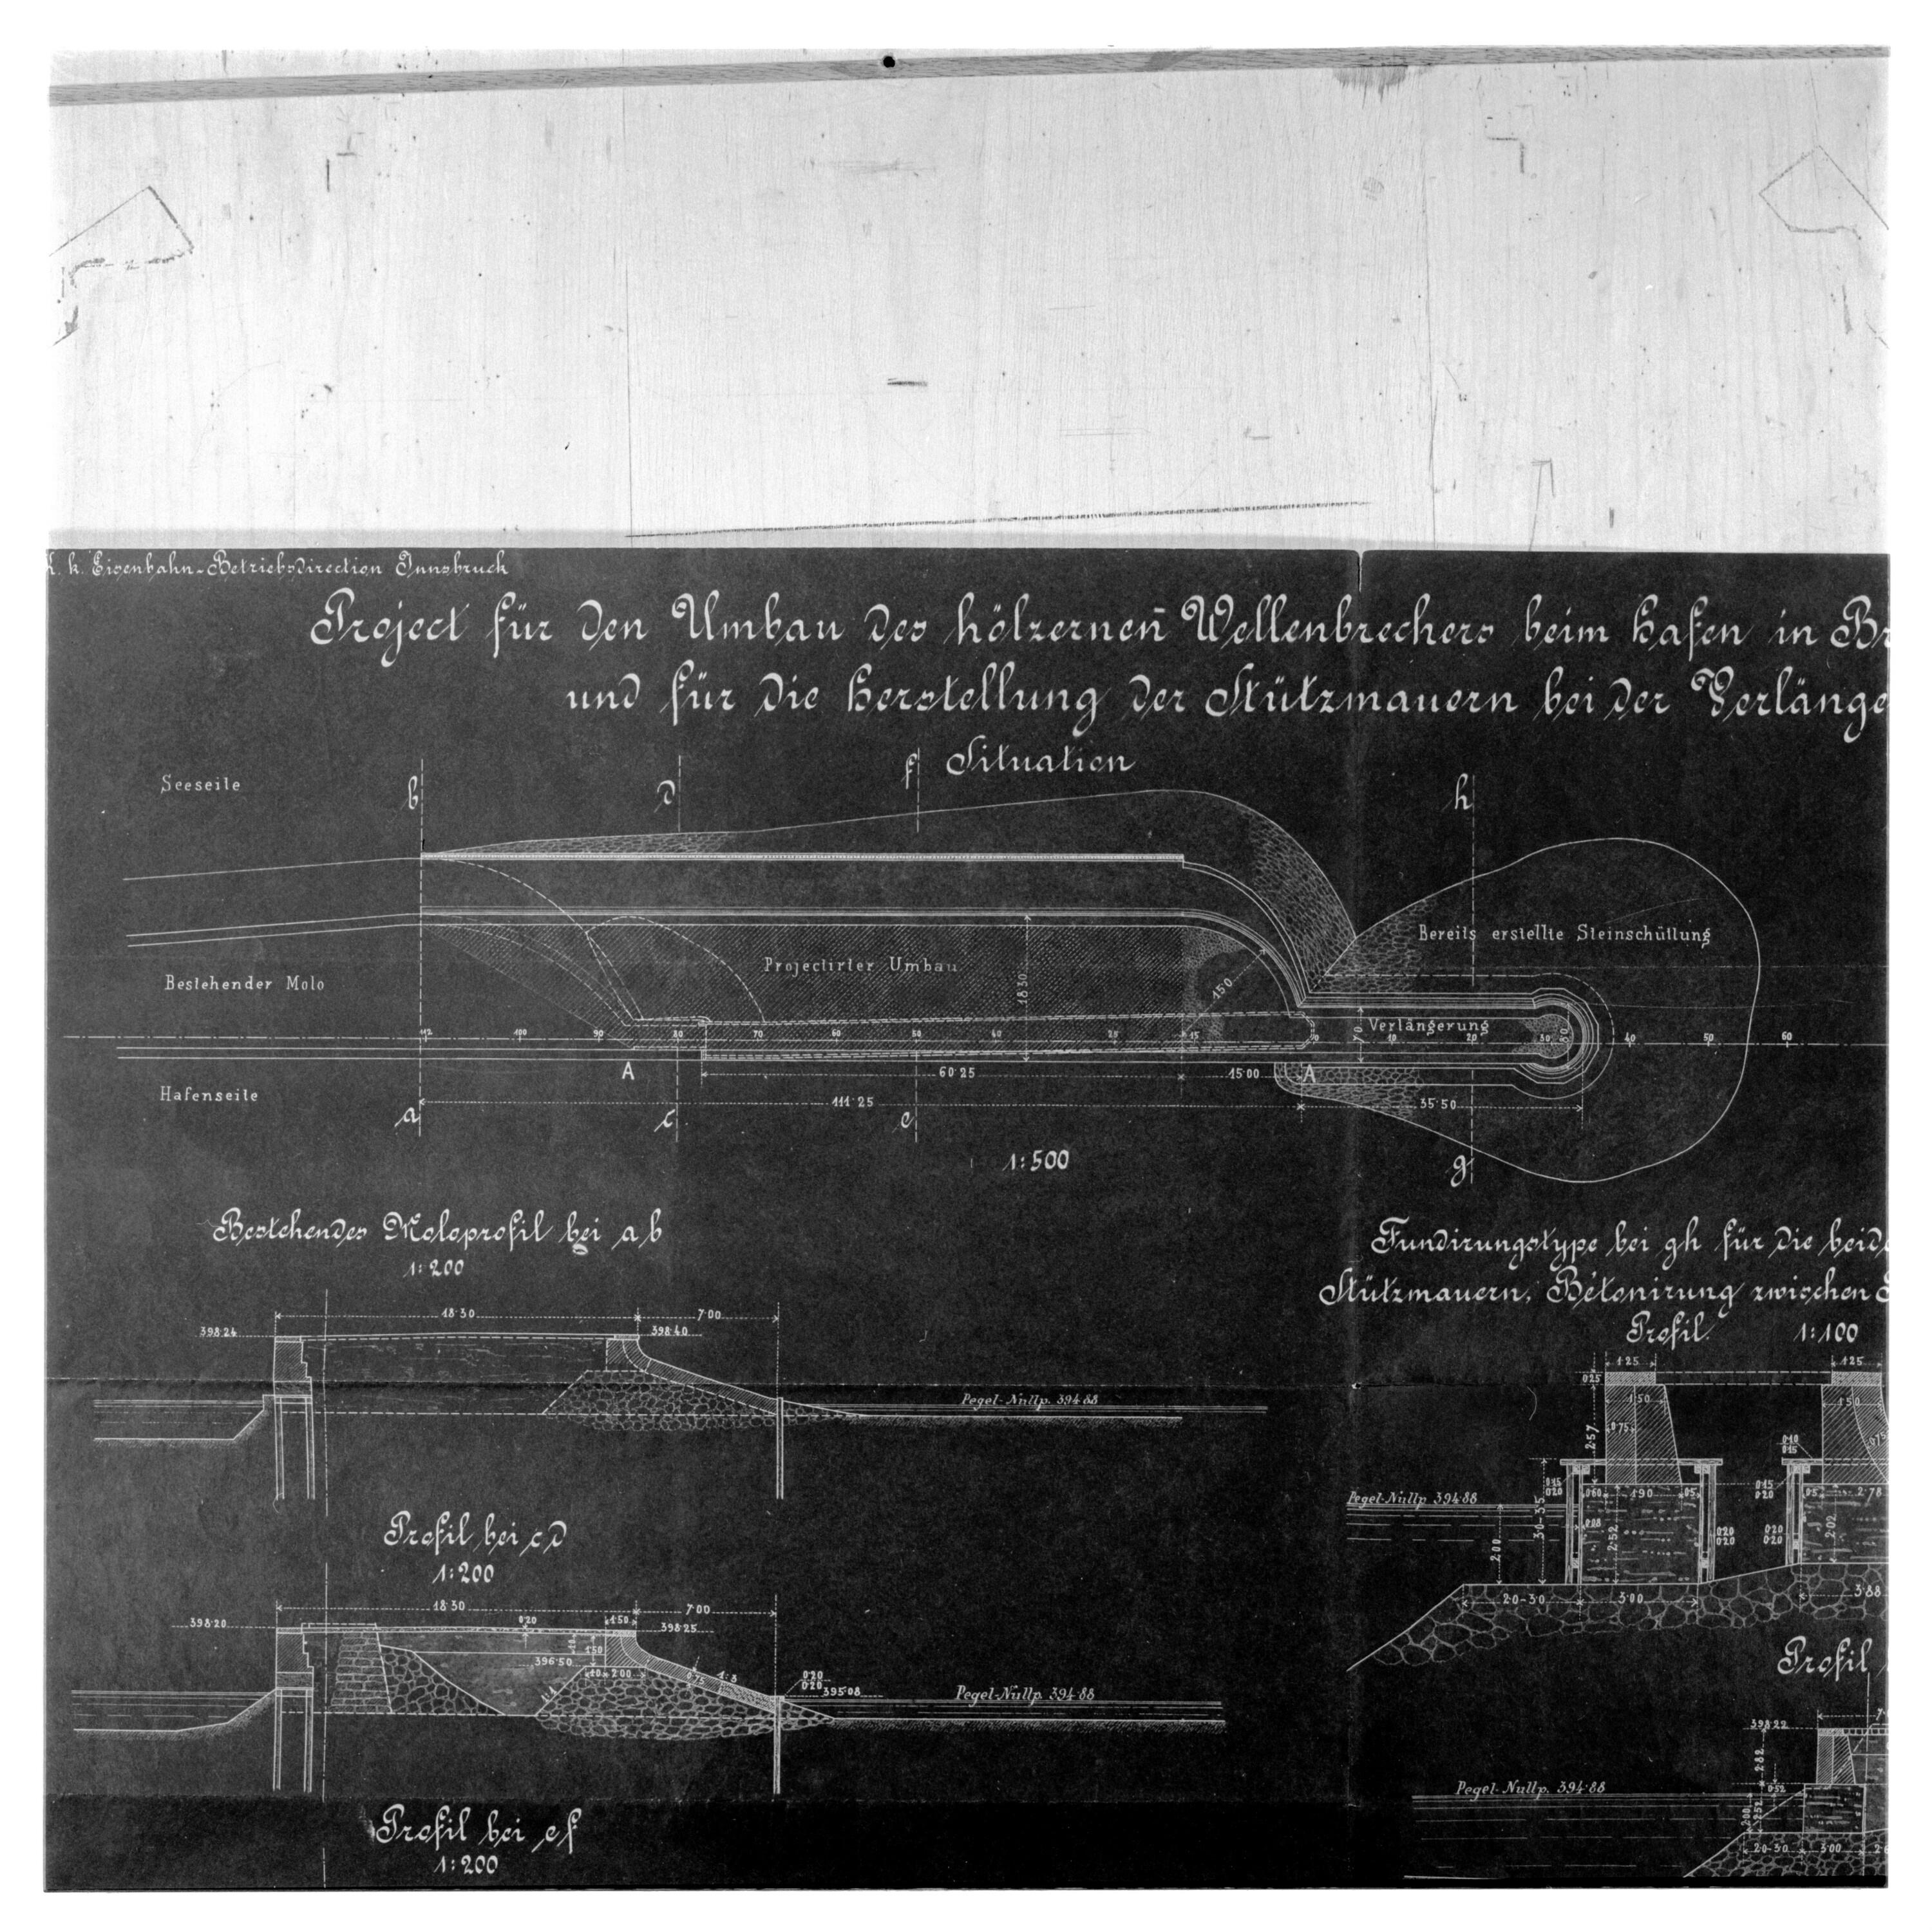 k. Eisenbahn-Betriebsdirection Innsbruck
Project für den Umbau des hölzernen̄ Wellenbrechers beim Hafen in Br
und für die Herstellung der Stützmauern bei der Verlänge
Situation
Seeseite
b
d
f
h
Bereits erstellte Steinschüttung
Projectirter Umbau
Bestehender Molo
18·30
150
Verlängerung
7·0
8·0
112 100 90 80 70 60 50 40 25 15 0 10 20 30 40 50 60
A
A
60·25
15·00
Hafenseite
111·25
35·50
a
c
e
g
1:500
Bestehendes Moloprofil bei a b
1:200
18·30
7·00
398·24
398·40
Pegel-Nullp. 394·88
Profil bei c d
1:200
18·30
7·00
398·20
0·20
1·50
398·25
1·50
396·50
1·0
2·00
1:1
0·75
1:3
0·20
0·20
395·08
Pegel-Nullp. 394·88
Profil bei e f
1:200
Fundirungstype bei gh für die beide
Stützmauern, Bétonirung zwischen
Profil 1:100
1·25
1·25
0·25
1·50
1·50
0·75
0·75
2·57
0·10
0·15
Pegel-Nullp. 394·88
0·15
0·20
0·60
1·90
0·5
0·15
0·20
0·5
2·78
3·0-3·5
0·08
2·00
2·52
0·20
0·20
0·20
0·20
2·02
2·0-3·0
3·00
3·88
Profil
398·22
2·82
Pegel-Nullp. 394·88
0·52
2·00
2·52
2·0-3·0
3·00